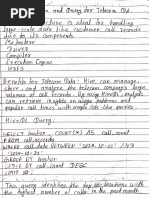 and Query for Telecom Data
is ideal for handling
large-scale data like customer call records
due to its components
Metastore
Driver
Compiler
Execution Engine
HDFS
Benefits for Telecom Data: Hive can manage,
and analyze the telecom company's large
volumes of call records. By using HiveQL, analysts
can retrieve insights on usage patterns and
with simple SQL-like queries.
HiveQL Query:
SELECT location, COUNT(*) AS call_count
FROM call_records
WHERE call_date BETWEEN AND
GROUP BY location
ORDER BY call_count DESC
LIMIT 10;
This query identifies the top 10 locations with
the highest number of calls in the past month